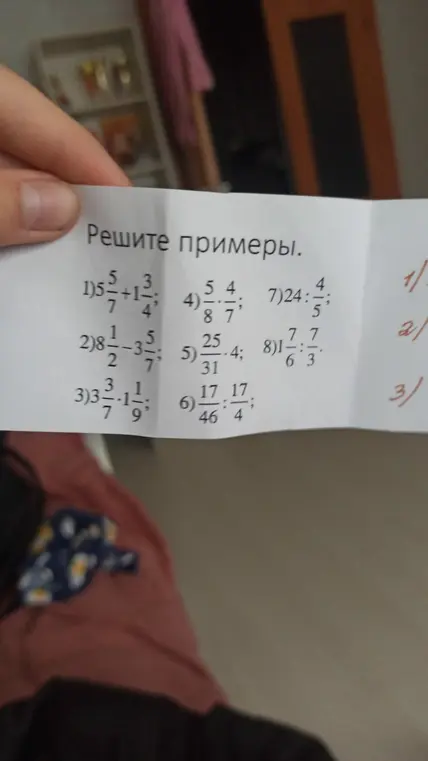 Решите примеры.
1) 5 5/7 + 1 3/4; 4) 5/8 · 4/7; 7) 24 : 4/5;
2) 8 1/2 − 3 5/7; 5) 25/31 · 4; 8) 1 7/6 : 7/3.
3) 3 3/7 · 1 1/9; 6) 17/46 : 17/4;
1/
2/
3)